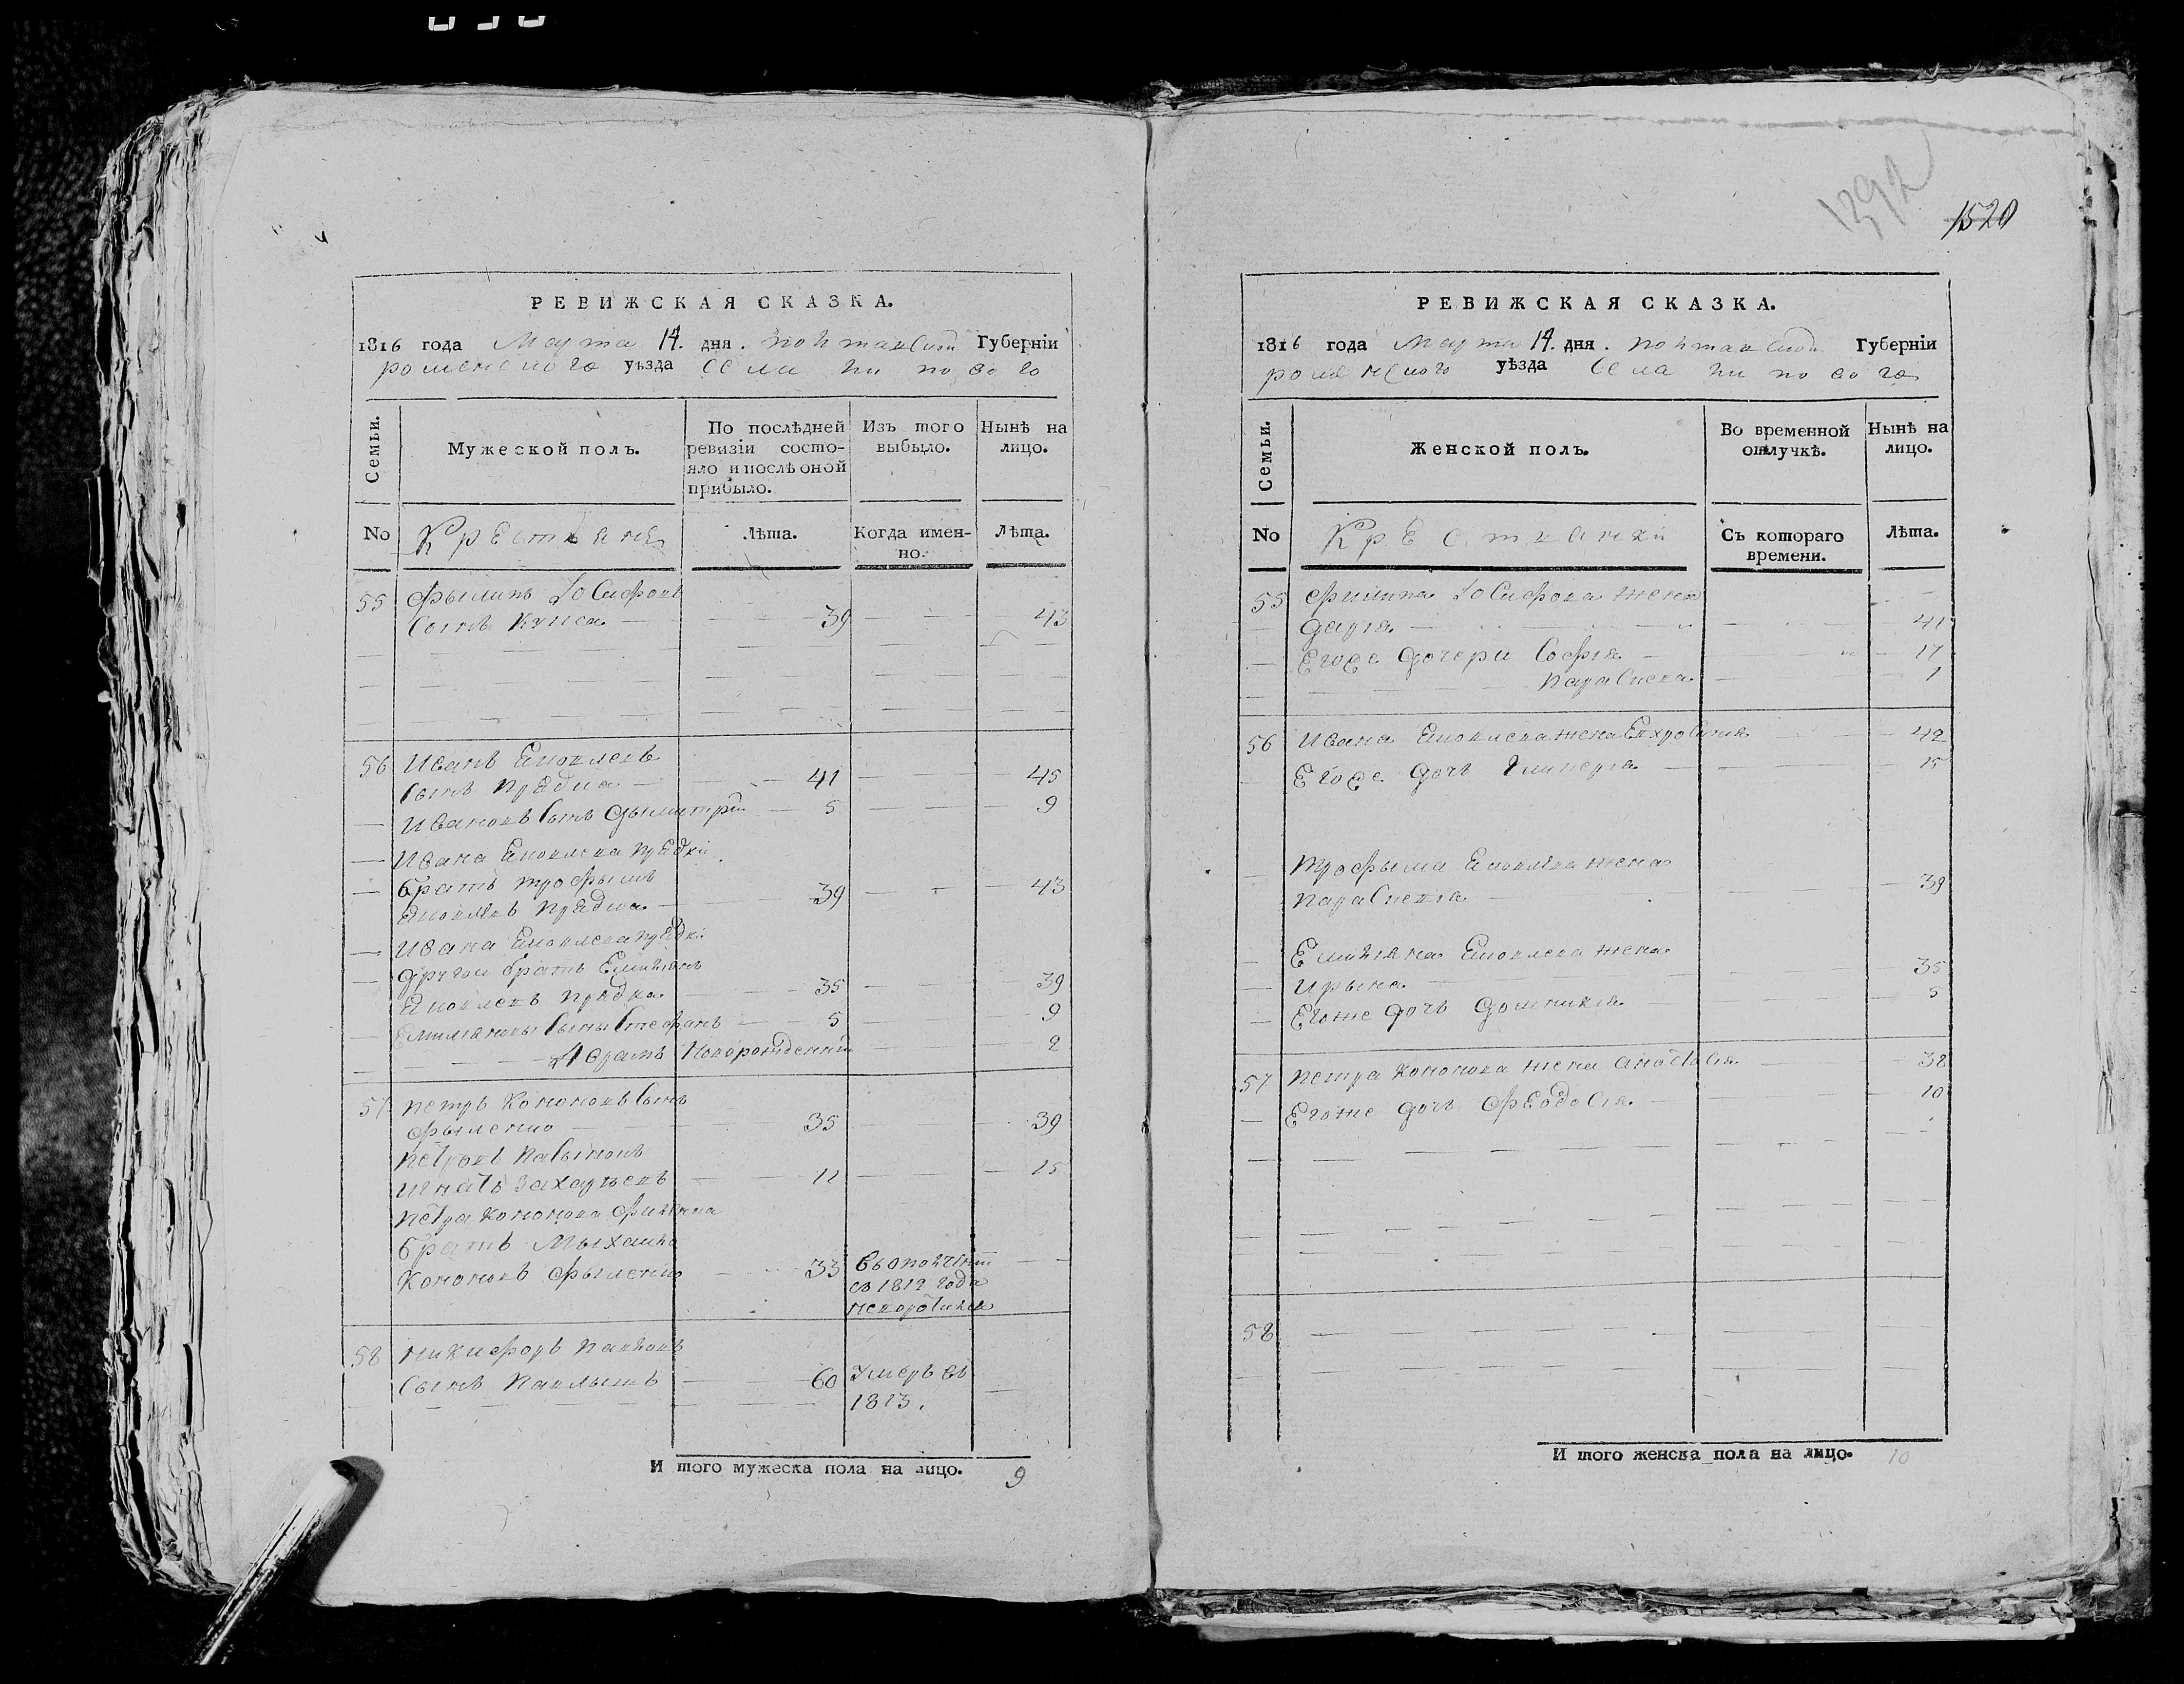 РЕВИЖСКАЯ СКАЗКА.
1816 года Марта 14. дня. полтавской Губерніи
роменского уѣзда села ли по во го
Семьи.
Мужеской полъ.
По послѣдней ревизіи состояло и послѣ оной прибыло.
Изъ того выбыло.
Нынѣ на лицо.
No
Крестьяне
Лѣта.
Когда именно.
Лѣта.
55 Фылипъ Іосифовъ
сынъ Куиса 39 43
56 Иванъ Яковлевъ
сынъ Прядка 41 45
Ивановъ сынъ Дымитрій 5 9
Ивана Яковлева Прядки
братъ Трофымъ
Яковлевъ Прядка 39 43
Ивана Яковлева Прядки
другой братъ Емилянъ
Яковлевъ Прядка 35 39
Емиляновы сыны Стефанъ 5 9
Аврамъ Новорожденній 2
57 Петръ Кононовъ сынъ
Фыленко 35 39
Петровъ Пасынокъ
Игнатъ Захарьевъ 11 15
Петра Кононова Филенка
братъ Мыхайло
Кононовъ Фыленко 33 въ ополченіи
съ 1812 года
неворотился
58 Никифоръ Павловъ
сынъ Павлышъ 60 Умеръ въ
1815.
И того мужеска пола на лицо. 9
1392
1520
РЕВИЖСКАЯ СКАЗКА.
1816 года Марта 14. дня. полтавской Губерніи
роменского уѣзда села ли по во го
Семьи.
Женской полъ.
Во временной отлучкѣ.
Нынѣ на лицо.
No
Крестьянки
Съ котораго времени.
Лѣта.
55 Филипа Іосифова жена
Дарія 41
Егоже дочери Софія 17
Параскева 1
56 Ивана Яковлева жена Евхросинія 42
Егоже дочь Гликерія 15
Трофыма Яковлева жена
Параскевія 39
Емиляна Яковлева жена
Ирына 35
Егоже дочь Домникія 5
57 Петра Кононова жена Анастасія 38
Егоже дочь Феодосія 10
58
И того женска пола на лицо. 10